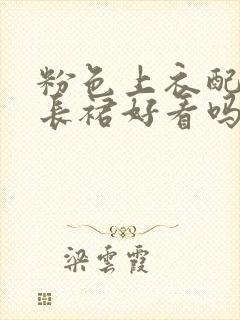 粉色上衣配
長裙好看吗
梁雲霞